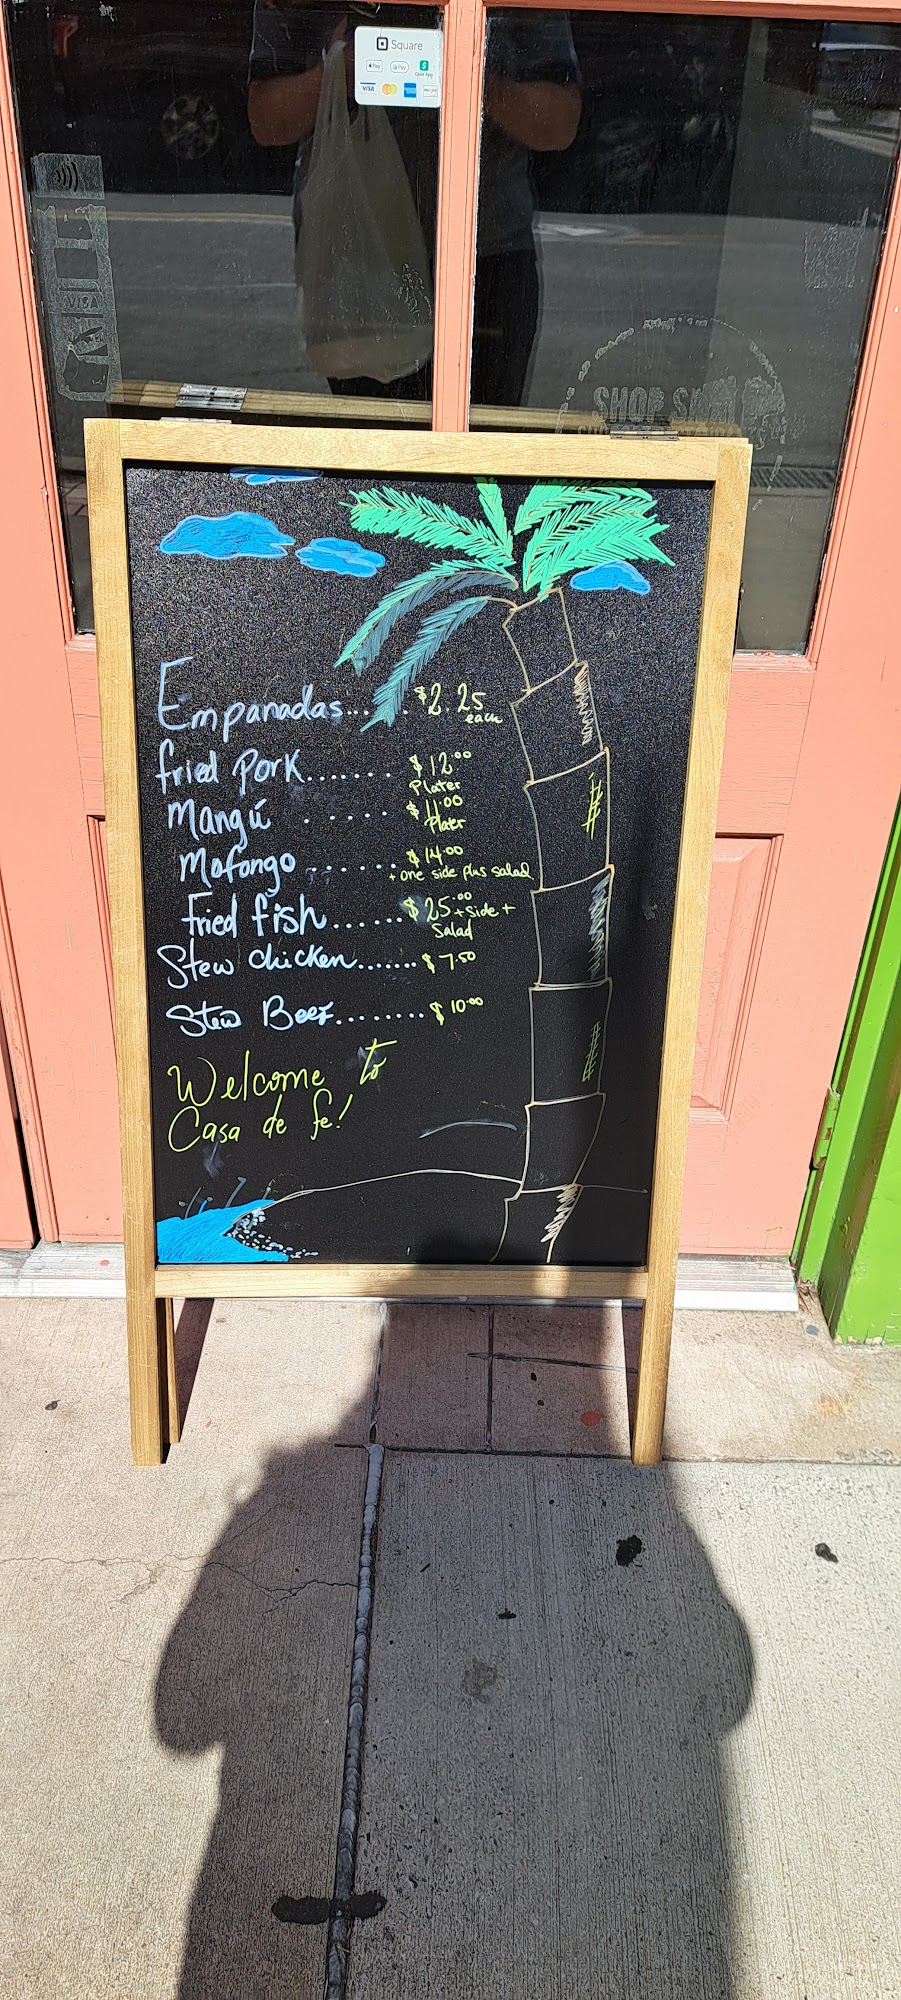 Square
Pay
G Pay
Cash App
VISA
SHOP SMALL
Empanadas...... $2.25
each
fried Pork....... $12.00
Plater
Mangú ..... $11.00
Plater
Mofongo ...... $14.00
+ one side plus salad
Fried fish...... $25.00 + side +
Salad
Stew chicken....... $7.50
Stew Beef........ $10.00
Welcome to
Casa de fe!